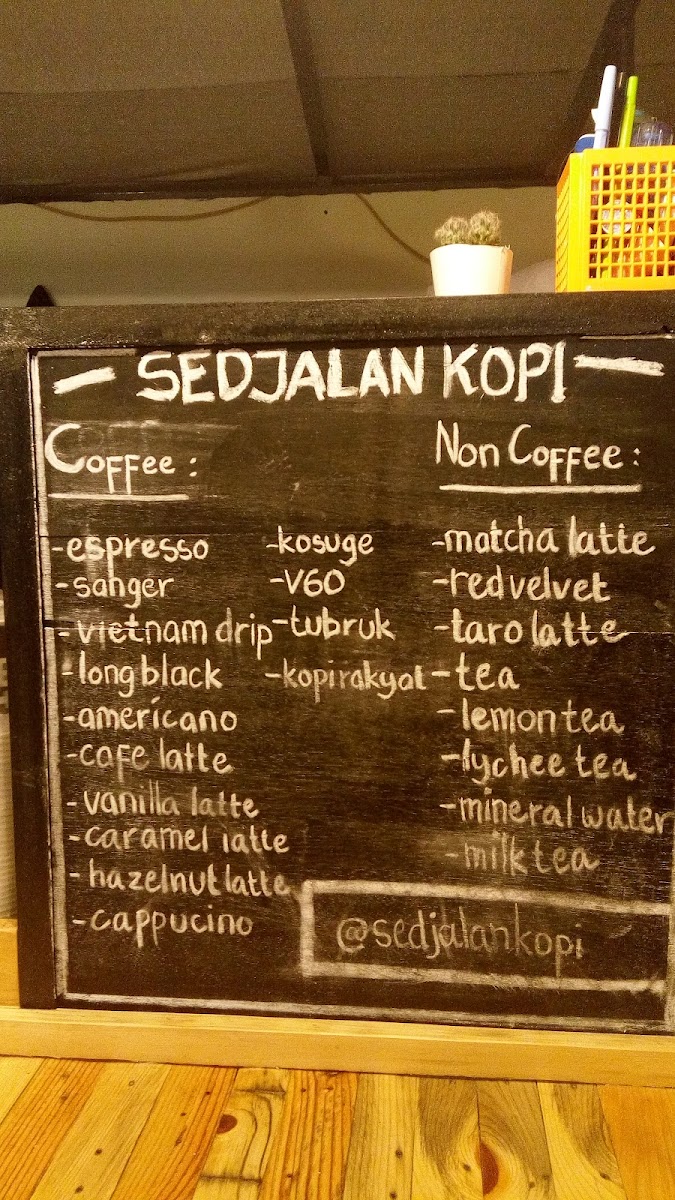 - SEDJALAN KOPI -
Coffee :
-espresso
-sanger
-vietnam drip
-long black
-americano
-cafe latte
-vanilla latte
-caramel latte
-hazelnut latte
-cappucino
-kosuge
-V60
-tubruk
-kopi rakyat
Non Coffee :
-matcha latte
-red velvet
-taro latte
-tea
-lemon tea
-lychee tea
-mineral water
-milk tea
@sedjalankopi